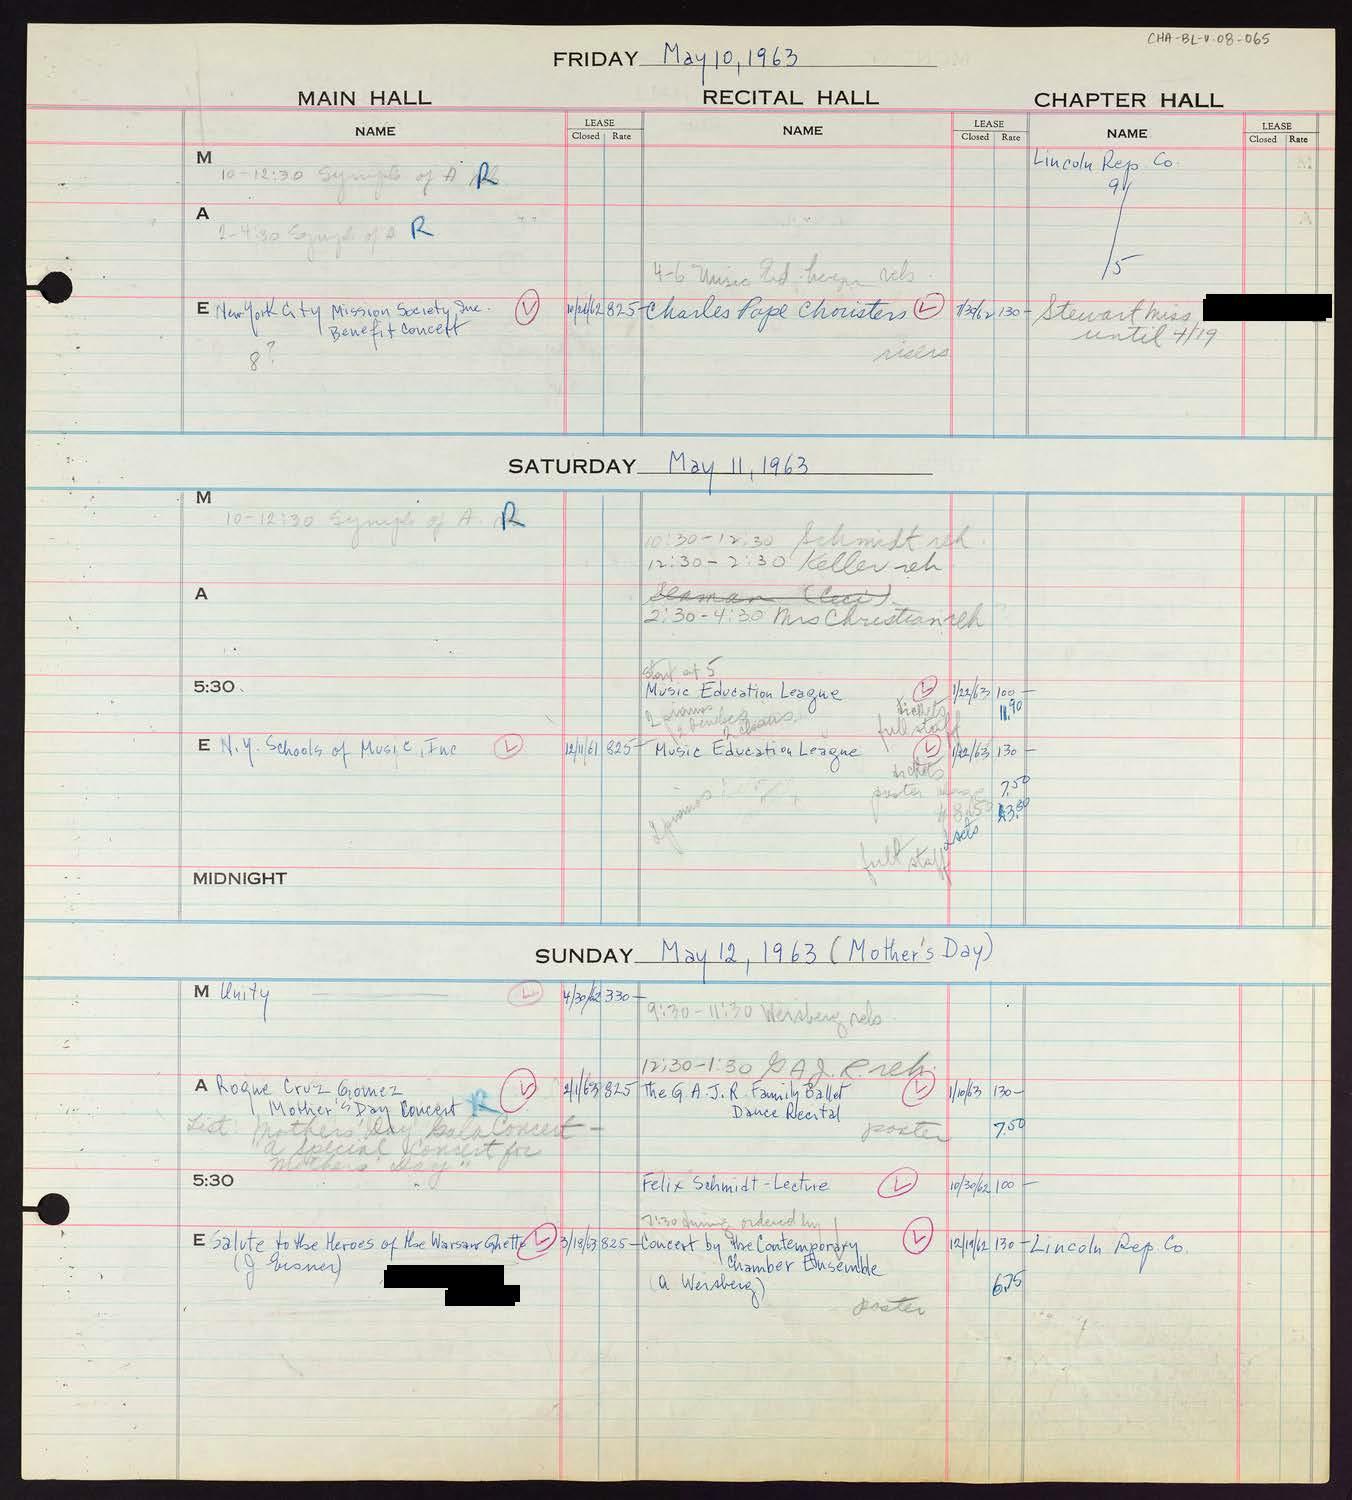 CHA-BL-V-08-065
FRIDAY May 10, 1963
MAIN HALL RECITAL HALL CHAPTER HALL
NAME LEASE Closed Rate NAME LEASE Closed Rate NAME LEASE Closed Rate
M 10-12:30 Symph of A R
Lincoln Rep. Co.
9
A 2-4:30 Symph of A R
5
4-6 Music Ed. League reh.
E New York City Mission Society, Inc. L 825- Charles Pope Choristers L 7/30/62 130- Stewart Miss
Benefit Concert until 4/19
8? risers
SATURDAY May 11, 1963
M 10-12:30 Symph of A. R
10:30-12:30 Schmidt reh.
12:30-2:30 Keller reh
A Seaman (Ceci)
2:30-4:30 Mrs Christian reh
start at 5
5:30 Music Education League L 1/22/63 100-
2 pianos tickets 11.90
2 benches
2 chairs full staff
E N.Y. Schools of Music, Inc L 12/11/61 825- Music Education League L 1/22/63 130-
tickets
poster 7.50
2 pianos
2 sets
full staff
MIDNIGHT
SUNDAY May 12, 1963 (Mother's Day)
M Unity L 4/30/62 330-
9:30-11:30 Weisberg reh.
12:30-1:30 G.A.J.R. reh.
A Roque Cruz Gomez L 2/1/63 825 The G.A.J.R. Family Ballet L 1/10/63 130-
Mother's Day Concert R Dance Recital
List: "Mothers' Day Gala Concert - poster 7.50
"A Special Concert for
Mothers' Day"
5:30 Felix Schmidt - Lecture L 10/30/62 100-
7:30 tuning ordered by
E Salute to the Heroes of the Warsaw Ghetto L 3/18/63 825- Concert by the Contemporary L 12/19/62 130- Lincoln Rep. Co.
(J Eisner) Chamber Ensemble
(A Weisberg) 6.75
poster